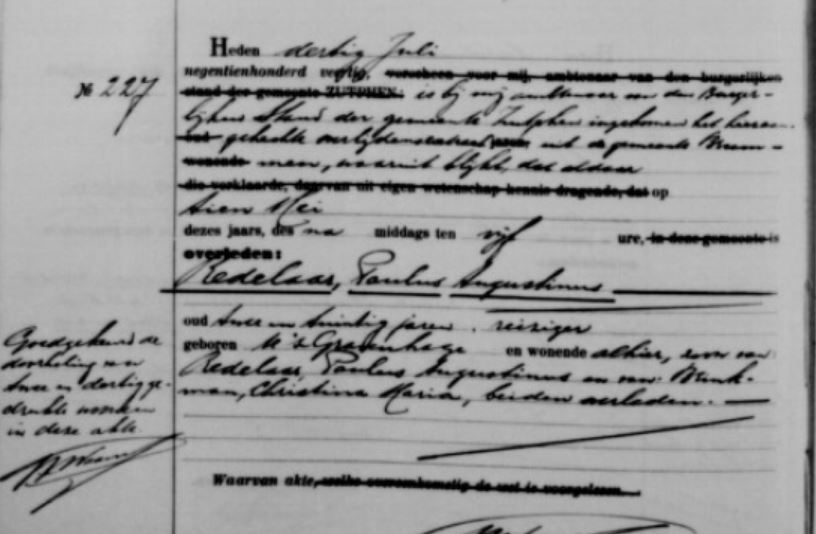 Heden dertig Juli
№ 227
negentienhonderd veertig, verscheen voor mij, ambtenaar van den burgerlijken
stand der gemeente ZUTPHEN: is bij mij ambtenaar van den Burger-
lijken Stand der gemeente Zutphen ingekomen het hieraan
gehechte overlijdensextract uit de gemeente
wonende waaruit blijkt, dat aldaar
die verklaarde, daarvan uit eigen wetenschap kennis dragende, dat op
tien Mei
dezes jaars, des na middags ten vijf ure, in deze gemeente is
overleden:
Redelaar, Paulus Augustinus
oud twee en twintig jaren, reiziger
geboren te 's Gravenhage en wonende alhier, zoon van:
Redelaar, Paulus Augustinus en van: Brink-
man, Christina Maria, beiden overleden.—
Goedgekeurd de
doorhaling van
twee en dertig ge-
drukte woorden
in deze akte.
Waarvan akte, welke overeenkomstig de wet is voorgelezen.